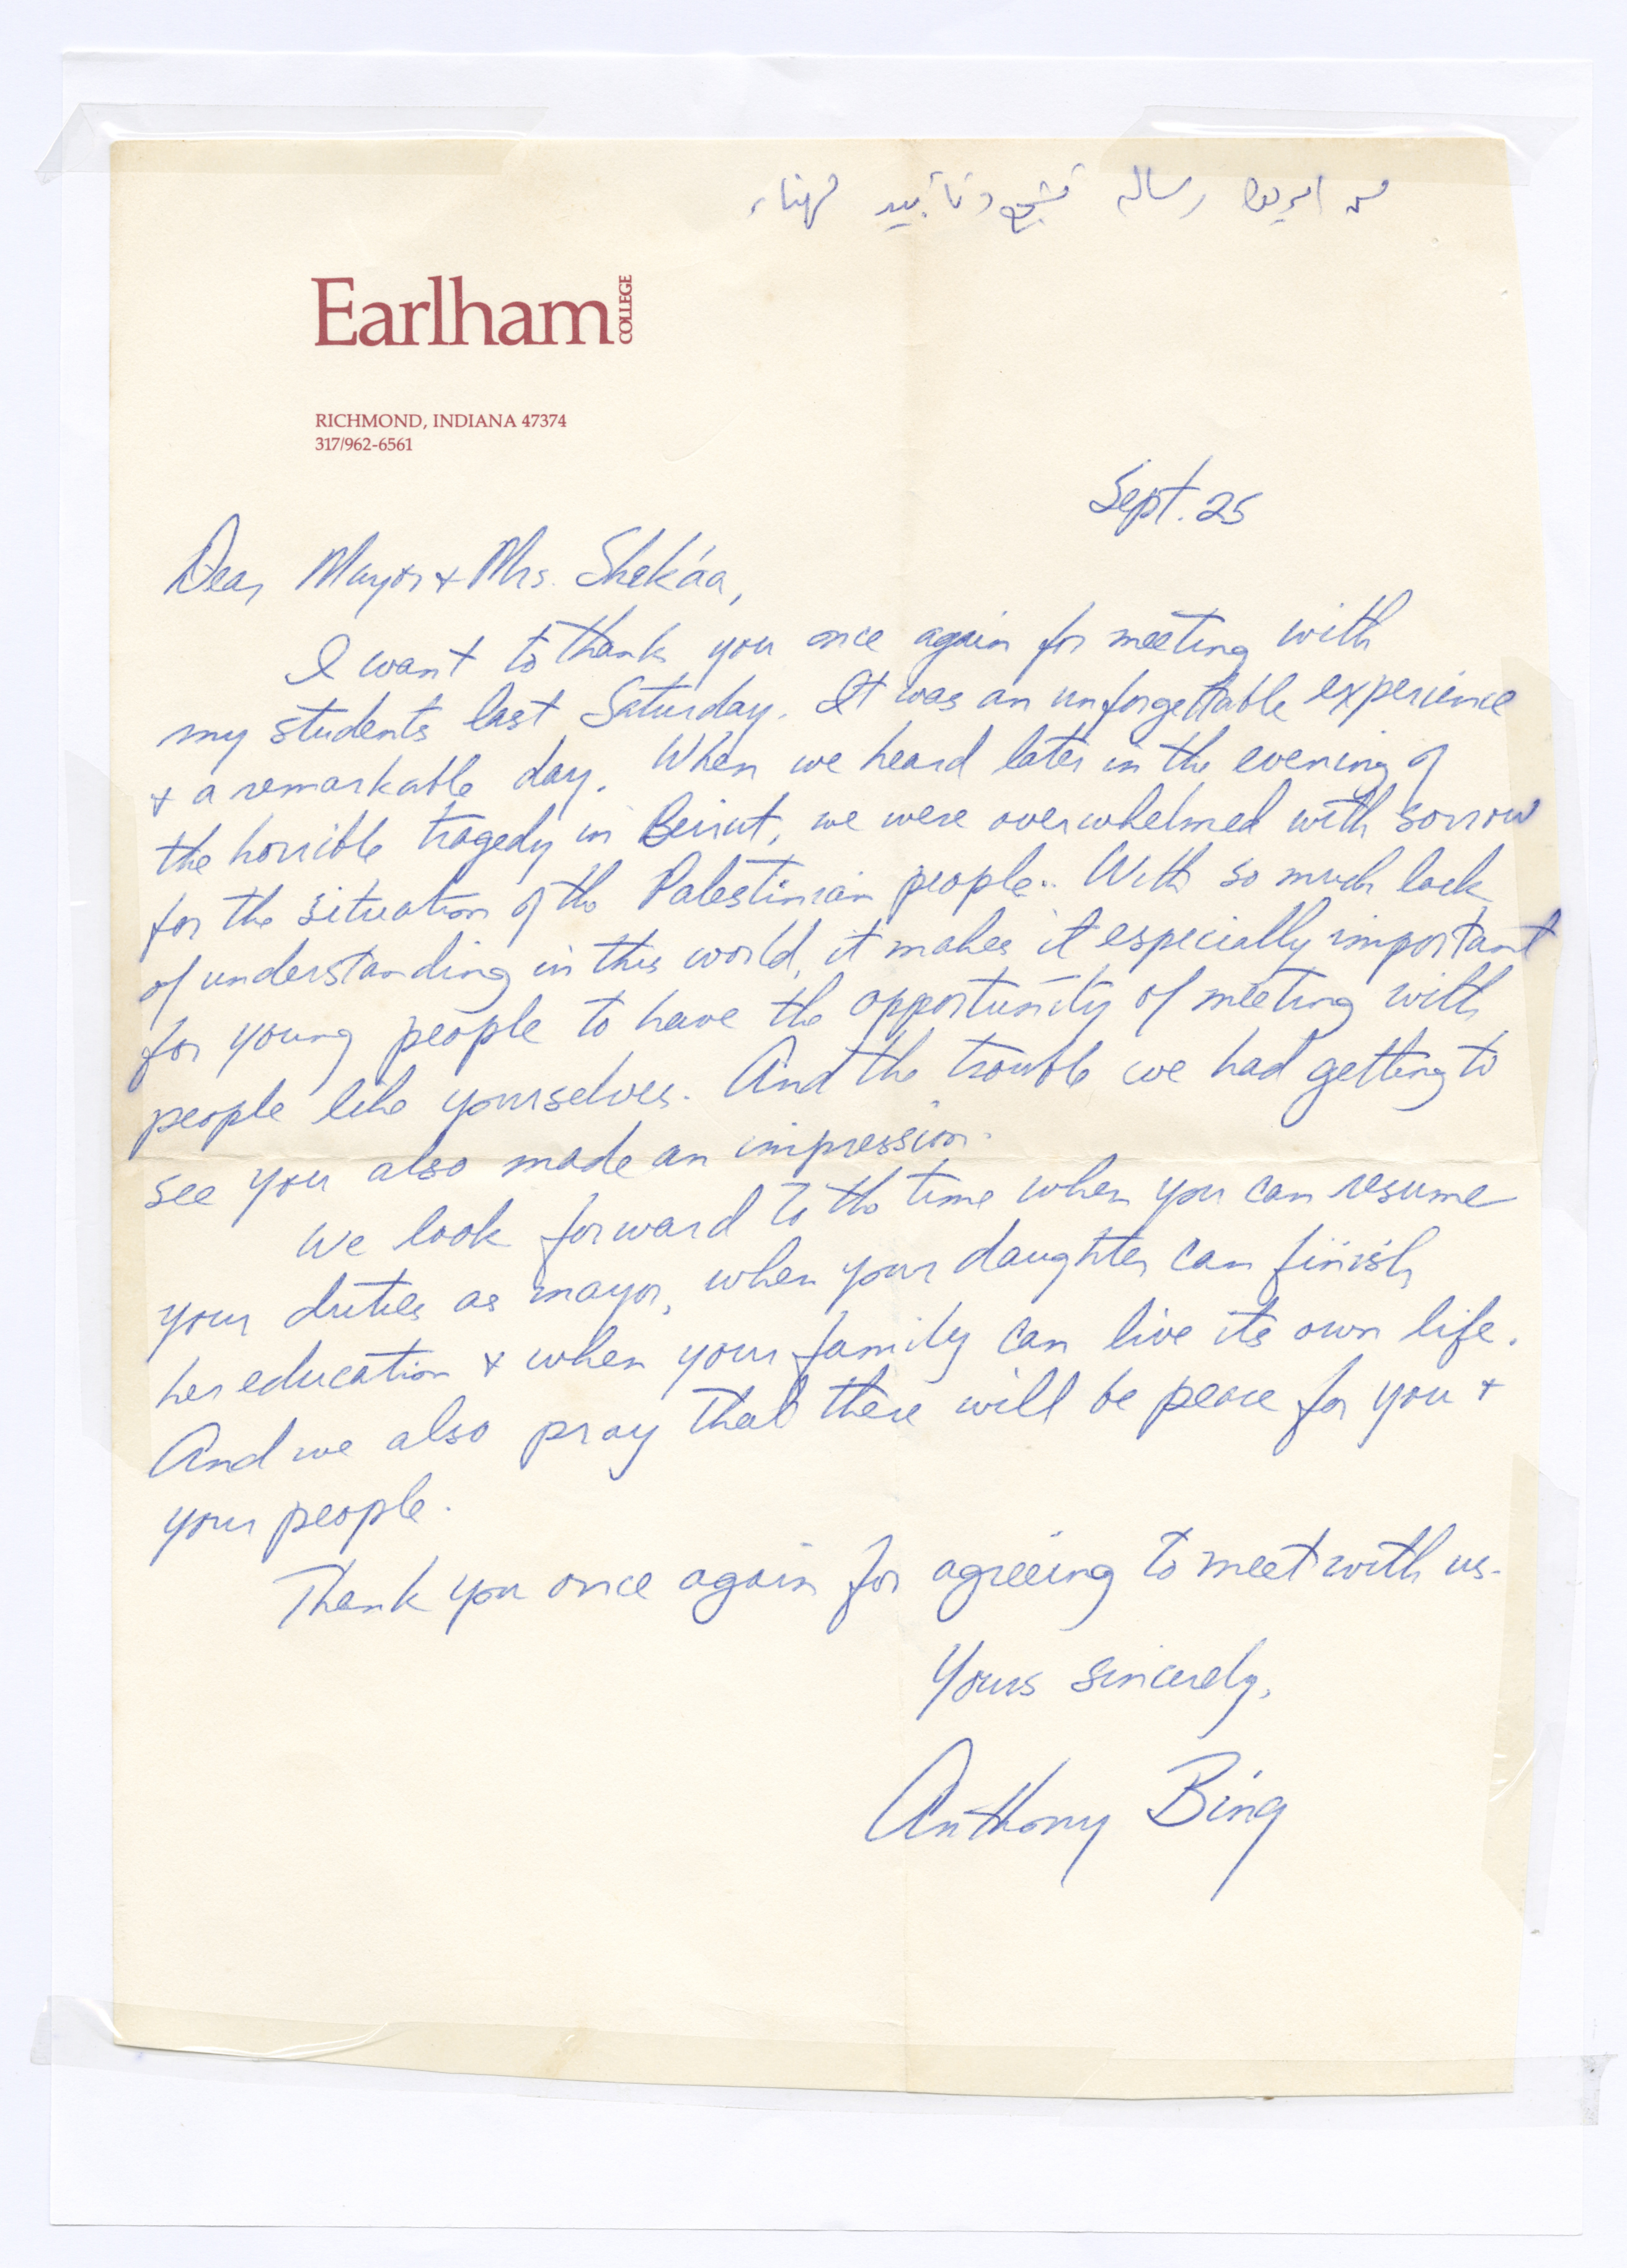 من امريكا رسالة تشجيع وتأييد
Earlham COLLEGE
RICHMOND, INDIANA 47374
317/962-6561
Sept. 25
Dear Mayor + Mrs. Shek'aa,
I want to thank you once again for meeting with
my students last Saturday. It was an unforgettable experience
+ a remarkable day. When we heard later in the evening of
the horrible tragedy in Beirut, we were overwhelmed with sorrow
for the situation of the Palestinian people. With so much lack
of understanding in this world, it makes it especially important
for young people to have the opportunity of meeting with
people like yourselves. And the trouble we had getting to
see you also made an impression.
We look forward to the time when you can resume
your duties as mayor, when your daughter can finish
her education + when your family can live its own life.
And we also pray that there will be peace for you +
your people.
Thank you once again for agreeing to meet with us.
Yours sincerely,
Anthony Bing